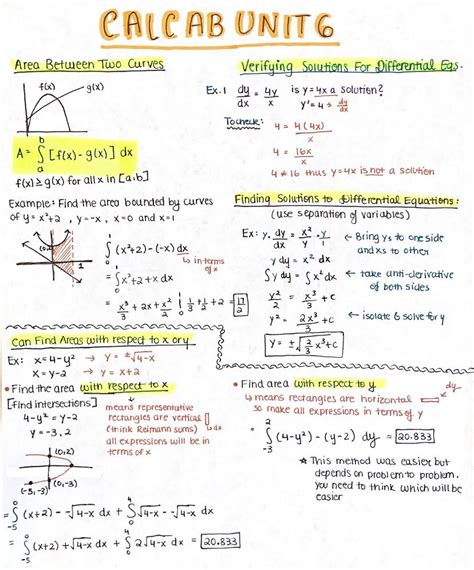 CALC AB UNIT 6
Area Between Two Curves
f(x)
g(x)
A = ∫ₐᵇ [f(x) - g(x)] dx
f(x) ≥ g(x) for all x in [a,b]
Example: Find the area bounded by curves
of y = x²+2, y = -x, x = 0 and x = 1
1
∫₀¹ (x²+2) - (-x) dx
↳ in terms of x
∫₀¹ x²+2+x dx
x³/3 + 2x + x²/2 |₀¹ 1/3 + 1/2 + 2/1 = 17/2
Verifying Solutions For Differential Eqs.
Ex. 1 dy/dx = 4y/x is y = 4x a solution?
y' = 4 → dy/dx
To check: 4 = 4(4x)/x
4 = 16x/x
4 ≠ 16 thus y=4x is not a solution
Finding Solutions to Differential Equations:
(use separation of variables)
Ex: y · dy/dx = x²/y · y
← Bring ys to one side
and xs to other
y dy = x² dx
∫y dy = ∫x² dx
← take anti-derivative
of both sides
y²/2 = x³/3 + c
y² = 2x³/3 + c
← isolate & solve for y
y = ±√(2/3 x³+c)
Can Find Areas with respect to x or y
Ex: x = 4-y² → y = ±√4-x
x = y-2 → y = x+2
• Find the area with respect to x
[Find intersections]
4-y² = y-2
y = -3, 2
↳ means representative
rectangles are vertical
(think Reimann sums) dx
all expressions will be in
terms of x
(0,2)
(0,-3)
(-5,-3)
= ∫₋₅⁰ (x+2) - -√4-x dx + ∫₀⁴ √4-x - -√4-x dx
= ∫₋₅⁰ (x+2) + √4-x dx + ∫₀⁴ 2√4-x dx = 20.833
• Find area with respect to y
↳ means rectangles are horizontal dy
so make all expressions in terms of y
∫₋₃² (4-y²) - (y-2) dy = 20.833
★ This method was easier but
depends on problem to problem,
you need to think which will be
easier